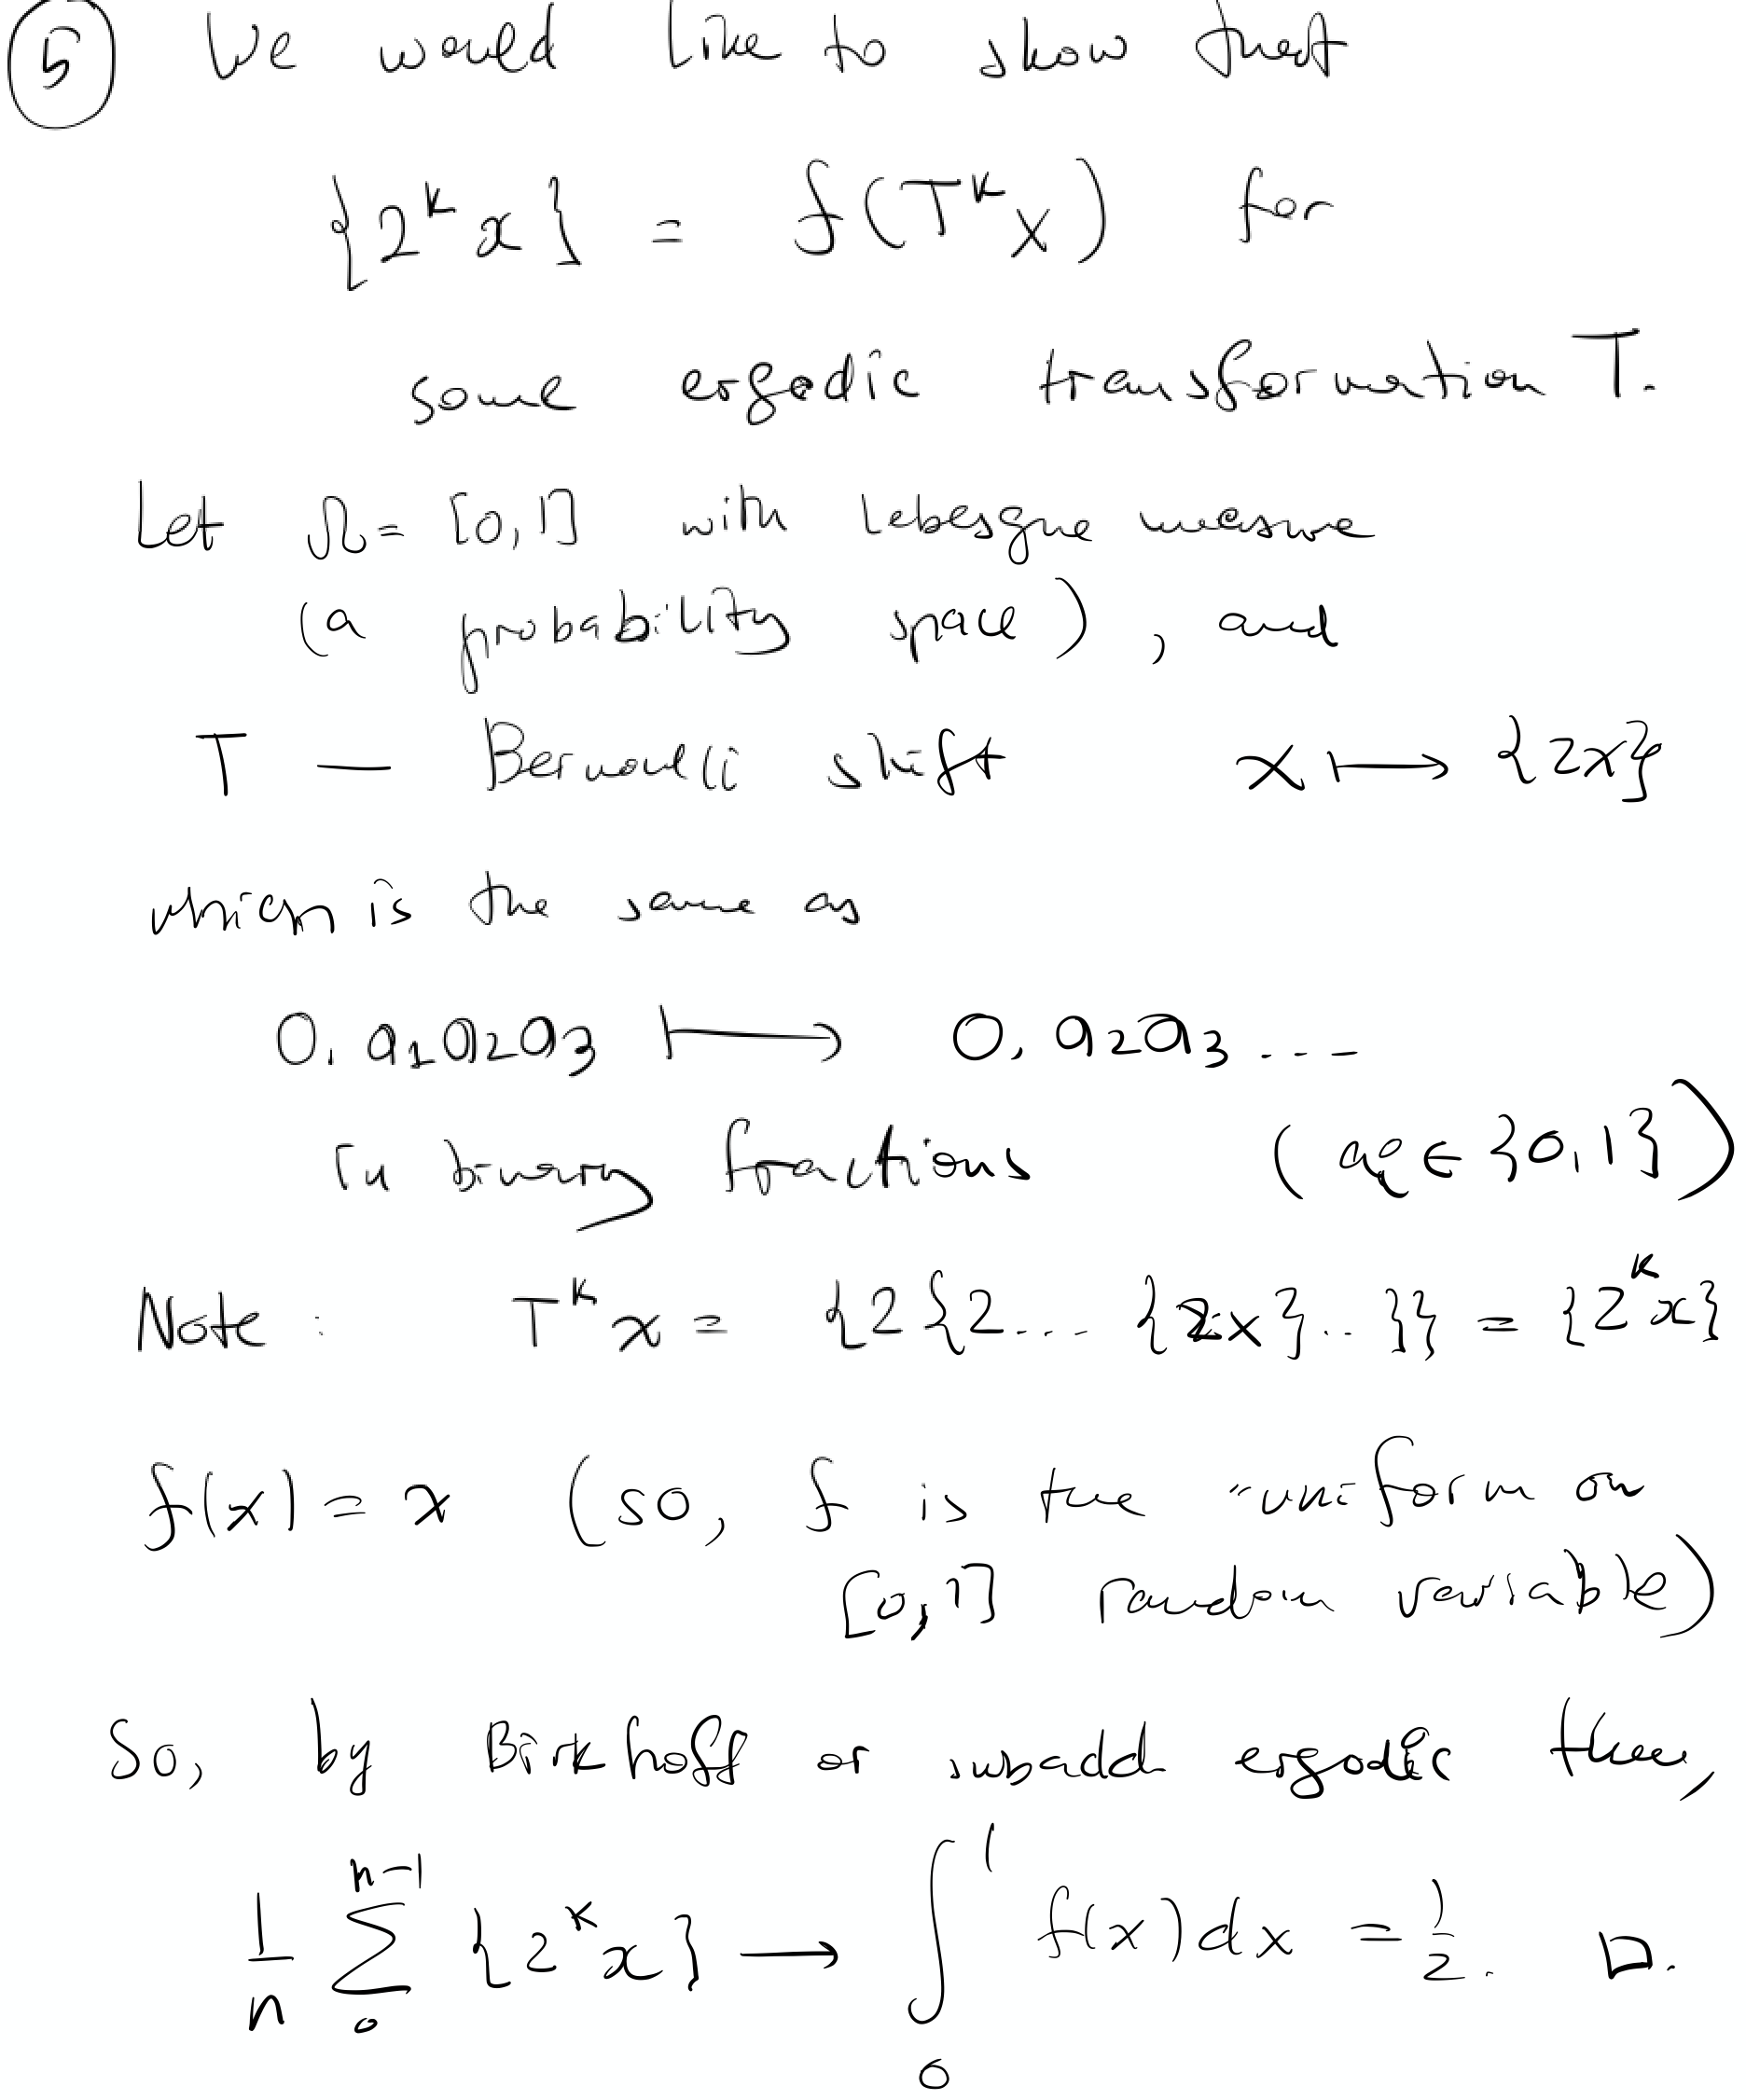 ⑤ We would like to show that
{2^k x} = f(T^k x) for
some ergodic transformation T.
Let Ω = [0,1] with Lebesgue measure
(a probability space), and
T — Bernoulli shift x ↦ {2x}
which is the same as
0.a₁a₂a₃ ⟼ 0.a₂a₃ ....
in binary fractions (aᵢ ∈ {0,1})
Note: T^k x = {2{2... {2x}..}} = {2^k x}
f(x) = x (so, f is the "uniform on
[0,1] random variable)
So, by Birkhoff or subadd ergodic thm,
1/n ∑₀ⁿ⁻¹ {2^k x} → ∫₀¹ f(x)dx = 1/2. □.